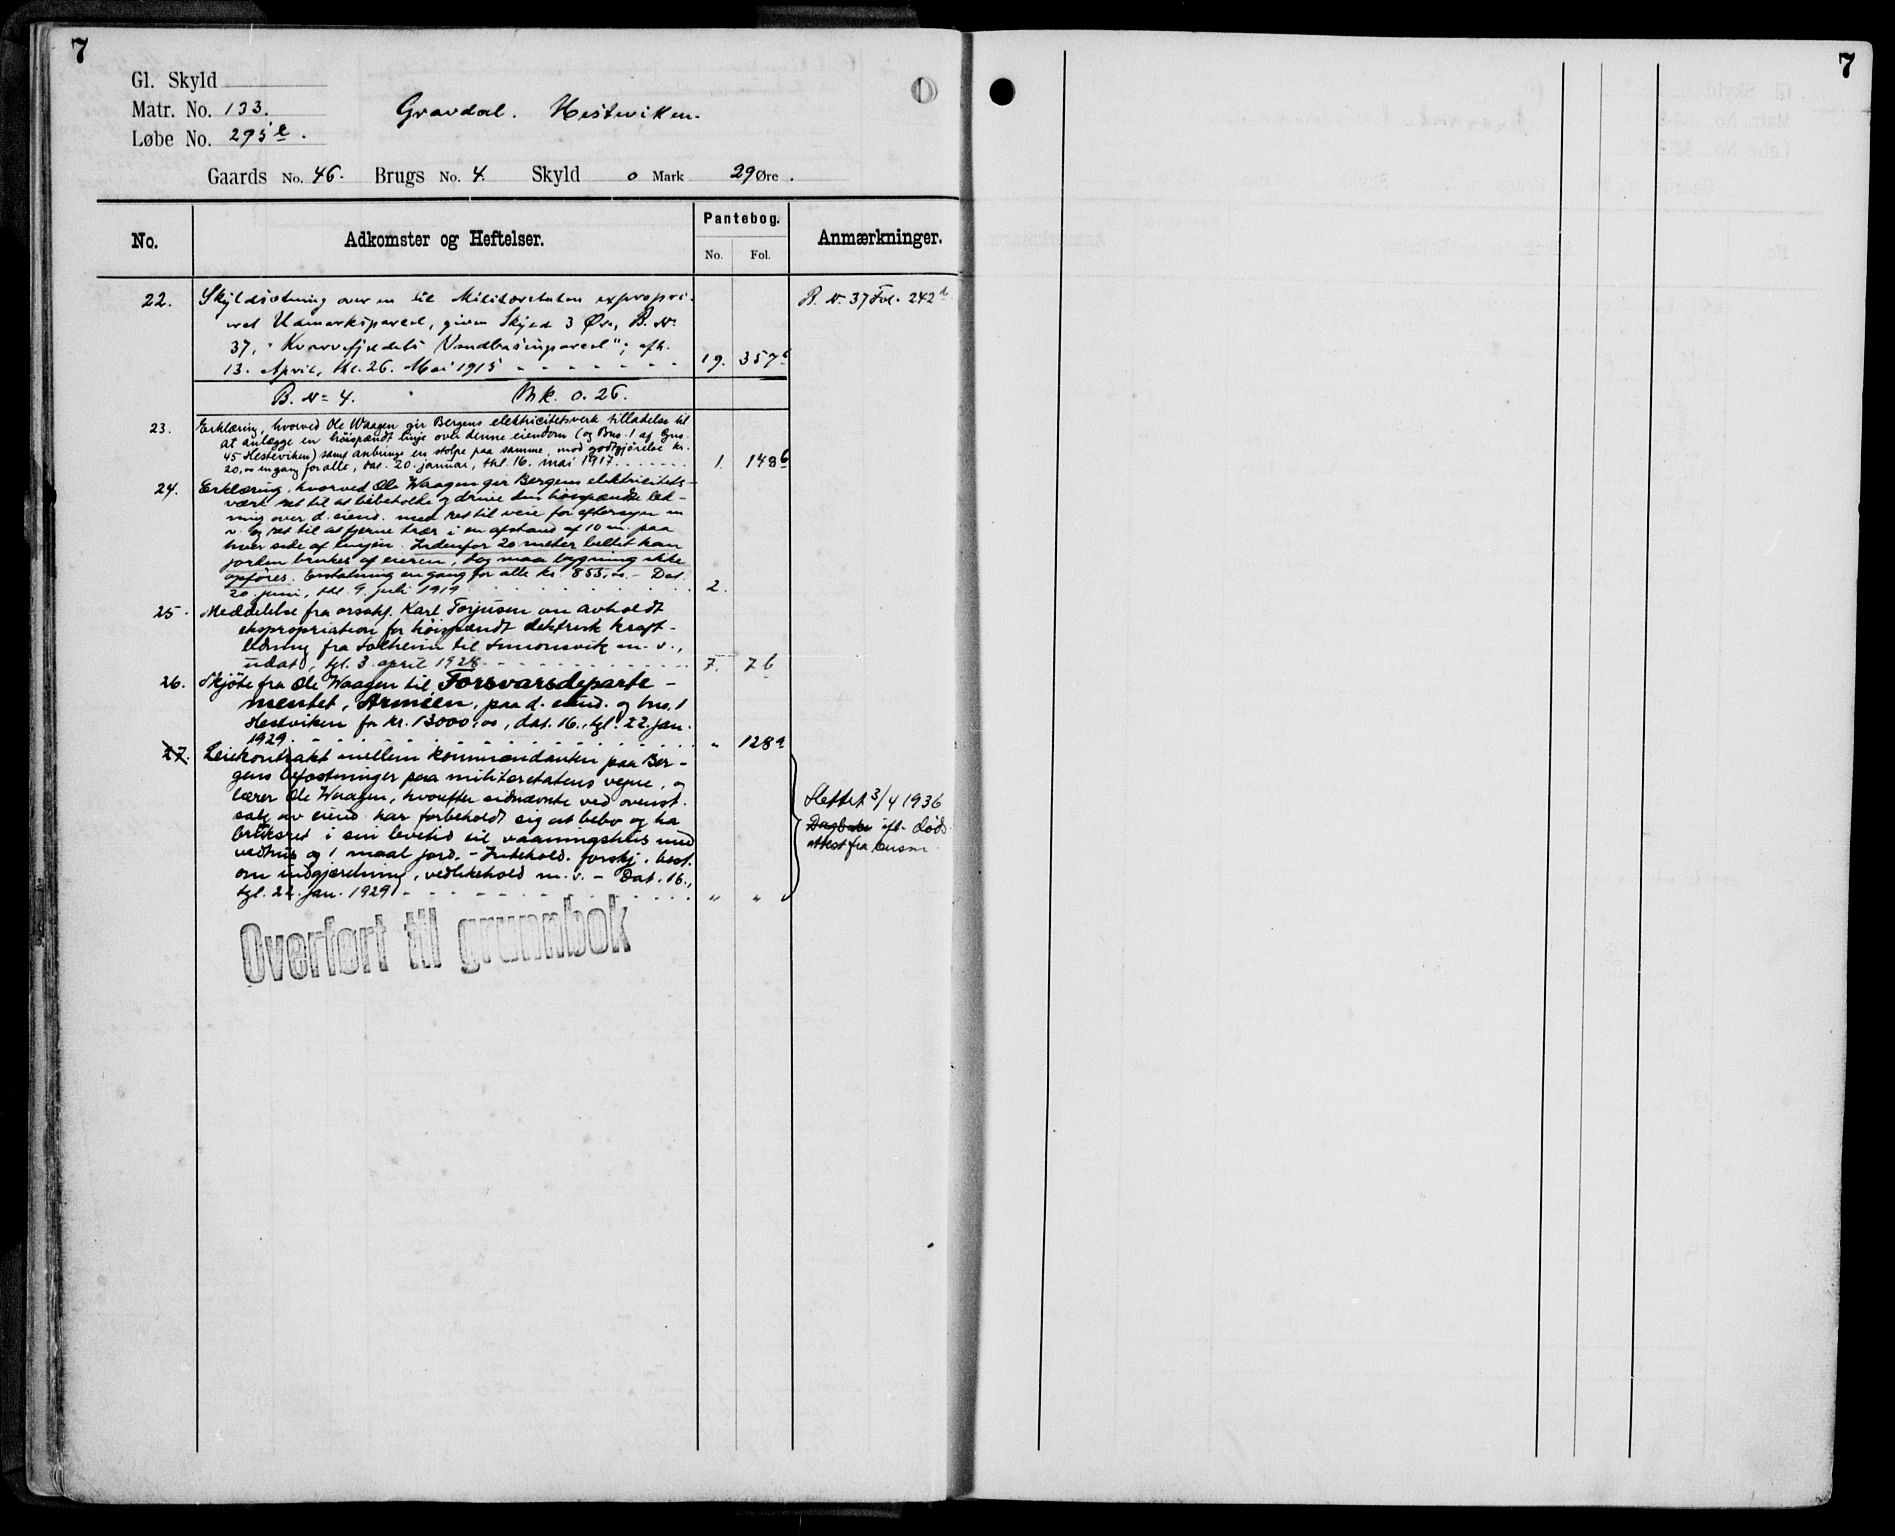 7
7
Gl. Skyld
Matr. No. 133.
Løbe No. 295 e.
Gravdal. Hesteviken.
Gaards No. 46. Brugs No. 4. Skyld 0 Mark 29 Øre.
No. Adkomster og Heftelser. Pantebog. Anmærkninger.
No. Fol.
22. Skyldsætning over en til Militæretaten expropri- B. N. 37 Fol. 242
eret Udmarksparcel, given Skyld 3 Øre, B. No
37, "Kvarvefjeldets Vandledningsparcel"; afh.
13. April, thl. 26. Mai 1915 - - - - - - - 19. 357b
B. No 4. Mk. 0.26.
23. Erklæring, hvorved Ole Waagen gir Bergens elektricitetsverk tilladelse til
at anlægge en høispændt linje over denne eiendom (og Bno. 1 af Gno.
45 Hesteviken) samt anbringe en stolpe paa samme, mod godtgjørelse kr.
20,00 engang for alle, dat. 20. januar, thl. 16. mai 1917....... 1. 148b
24. Erklæring, hvorved Ole Waagen gir Bergens elektricitets-
værk ret til at bibeholde og drive den høispændte led-
ning over d. eiend. med ret til veie for eftersyn m
v. og ret til at fjerne trær i en afstand af 10 m. paa
hver side af linjen. Indenfor 20 meter beltet kan
jorden brukes af eieren, dog maa bygning ikke
opføres. Erstatning en gang for alle kr. 853,00. - Dat.
20. juni, thl. 9. juli 1919 . . . . . . . . 2.
25. Meddelelse fra orsakf. Karl Torjusen om avholdt
ekspropriation for høispændt elektrisk kraft-
ledning fra Solheim til Simonsvik m. v.,
udat, tgl. 3. april 1928 - - - - - - - 7. 7b
26. Skjøte fra Ole Waagen til Forsvarsdeparte-
mentet, Armeen, paa d. eiend. og bno. 1
Hestviken for kr. 13000,00, dat. 16., tgl. 22. jan.
1929. . . . . . . . . . . . " 128a
27. Leiekontrakt mellem kommandanten paa Ber-
gens befæstninger paa militæretatens vegne, og
lærer Ole Waagen, hvorefter sidnævnte ved ovenst.
salg av eiend. har forbeholdt sig at bebo og ha
bruksret i sin levetid til vaaningshus med
vedhus og 1 maal jord. - Indehold. forskj. best.
om indgjærdning, vedlikehold m. v. - Dat. 16.,
tgl. 22. jan. 1929 - - - - - - " "
Slettet 3/4 1936
Dagboken ifl. døds
attest fra
Overført til grunnbok